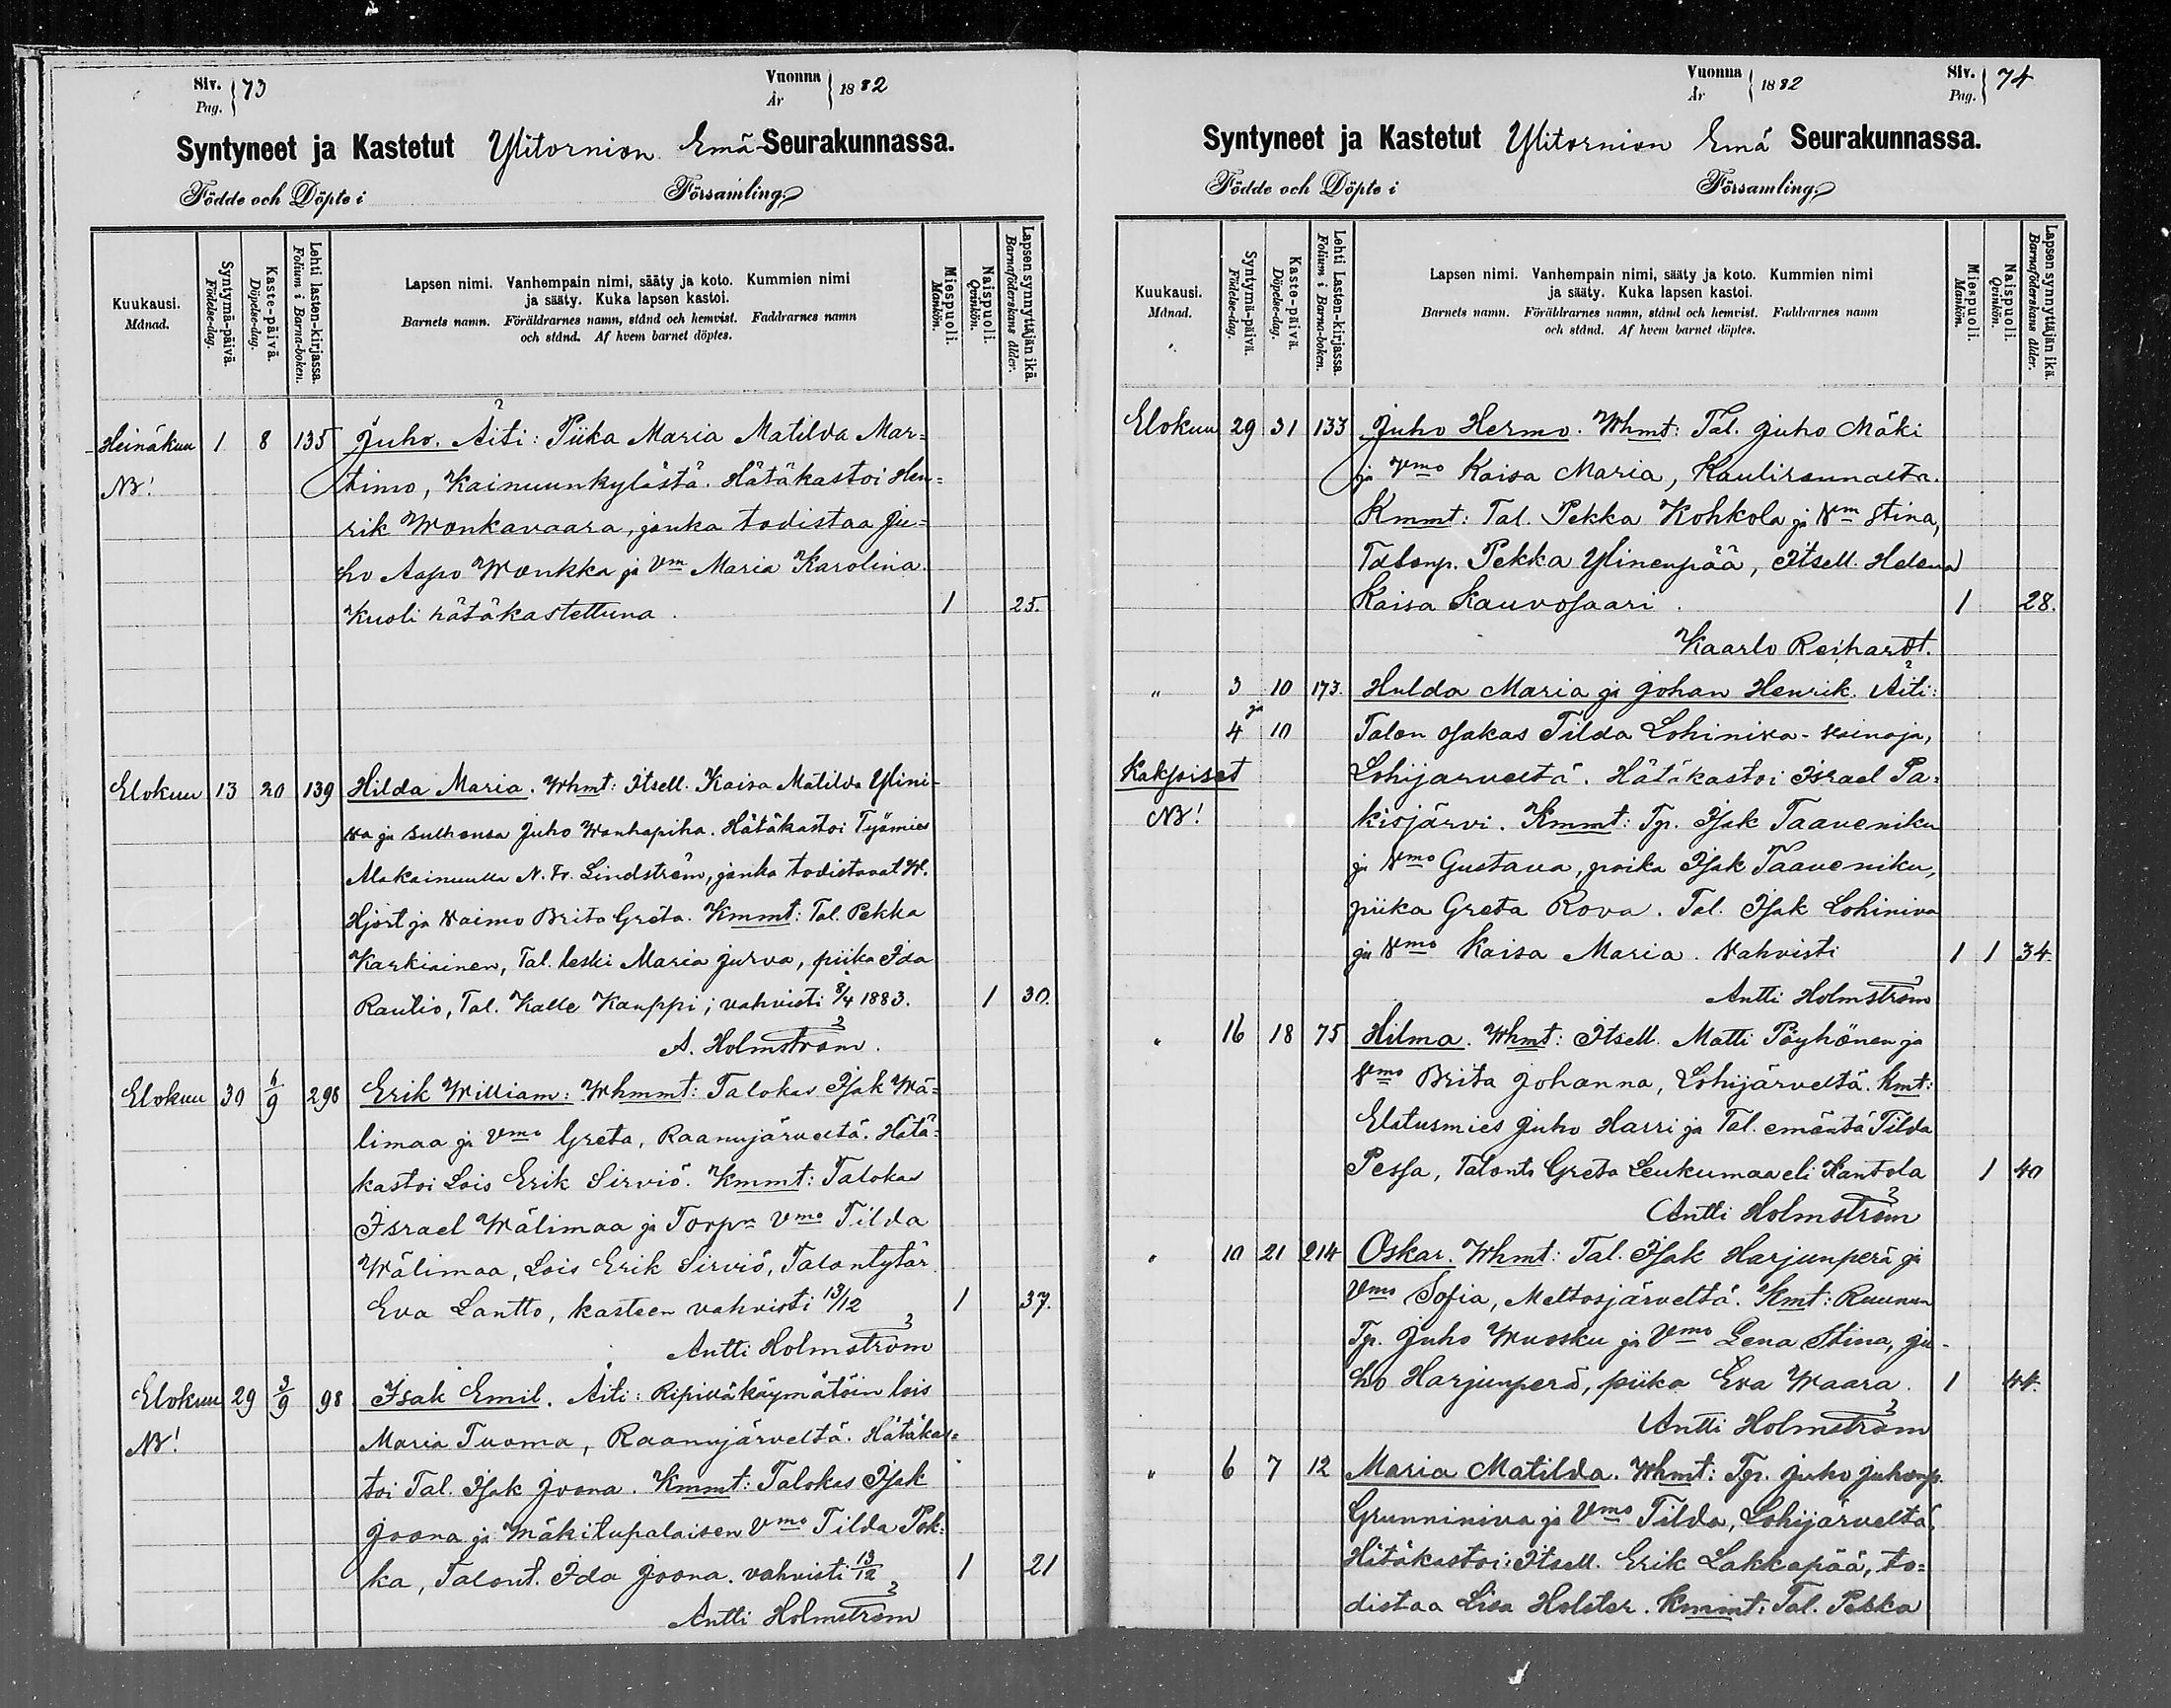 Siv. 73
Pag.
Vuonna 1882
År
Syntyneet ja Kastetut Ylitornion Emä-Seurakunnassa.
Födde och Döpte i Församling
Kuukausi.
Månad.
Syntymä-päivä.
Födelse-dag.
Kaste-päivä.
Döpelse-dag.
Lehti lasten-kirjassa.
Folium i Barna-boken.
Lapsen nimi. Vanhempain nimi, sääty ja koto. Kummien nimi
ja sääty. Kuka lapsen kastoi.
Barnets namn. Föräldrarnes namn, stånd och hemvist. Faddrarnes namn
och stånd. Af hvem barnet döptes.
Miespuoli.
Mankön.
Naispuoli.
Qvinkön.
Lapsen synnyttäjän ikä.
Barnaföderskans ålder.
Heinäkuu 1 8 135 Juho. Äiti: Piika Maria Matilda Mar-
NB! timo, Kainuunkylästä. Hätäkastoi Hen-
rik Wonkavaara, jonka todistaa Ju-
ho Aapo Wonkka ja Vm Maria Karolina.
Kuoli hätäkastettuna. 1 25.
Elokuu 13 20 139 Hilda Maria. Whmt: Itsell. Kaisa Matilda Ylini-
wa ja sulhonsa Juho Wanhapiha. Hätäkastoi Työmies
Alakainuulla N. Fr. Lindström, jonka todistavat W.
Hjort ja Vaimo Brita Greta. Kmmt: Tal. Pekka
Karkiainen, Tal. leski Maria Jurva, piika Ida
Rautio, Tal. Kalle Kauppi; vahvisti 8/4 1883. 1 30.
A. Holmström.
Elokuu 30 9 298 Erik William: Whmmt: Talokas Isak Wä-
limaa ja Vmo Greta, Raanujärveltä. Hätä-
kastoi Lois Erik Sirviö. Kmmt: Talokas
Israel Wälimaa ja Torpn Vmo Tilda
Wälimaa, Lois Erik Sirviö, Talontytär
Eva Lantto, kasteen vahvisti 13/12 1 37.
Antti Holmström
Elokuu 29 3/9 98 Isak Emil. Äiti: Ripiwäkäymätöin lois
NB! Maria Tuoma, Raanujärveltä. Hätäkas-
toi Tal. Isak Joona. Kmmt: Talokas Isak
Joona ja Mäkitupalaisen Vmo Tilda Pok-
ka, Talont. Ida Joona. vahvisti 13/12 1 21
Antti Holmström
Vuonna 1882
År
Siv. 74
Pag.
Syntyneet ja Kastetut Ylitornion Emä Seurakunnassa.
Födde och Döpte i Församling
Kuukausi.
Månad.
Syntymä-päivä.
Födelse-dag.
Kaste-päivä.
Döpelse-dag.
Lehti Lasten-kirjassa.
Folium i Barna-boken.
Lapsen nimi. Vanhempain nimi, sääty ja koto. Kummien nimi
ja sääty. Kuka lapsen kastoi.
Barnets namn. Föräldrarnes namn, stånd och hemvist. Faddrarnes namn
och stånd. Af hvem barnet döptes.
Miespuoli.
Mankön.
Naispuoli.
Qvinkön.
Lapsen synnyttäjän ikä.
Barnaföderskans ålder.
Elokuu 29 31 133 Juho Hermo. Whmt: Tal. Juho Mäki
ja Vmo Kaisa Maria, Kaulirannalta.
Kmmt: Tal. Pekka Kohkola ja Vm Stina,
Talonp. Pekka Ylinenpää, Itsell. Helena
Kaisa Kauvosaari. 1 28.
Kaarlo Reihardt.
" 3 10 173. Hulda Maria ja Johan Henrik. Äiti:
ja
4 10 Talon osakas Tilda Lohiniva-Vainoja,
Kakſoiset Lohijarveltä. Hätäkastoi Israel Pa-
NB! kisjärvi. Kmmt: Tp. Isak Taaveniku
ja Vmo Gustava, poika Isak Taaveniku,
piika Greta Rova. Tal. Isak Lohiniva
ja Vmo Kaisa Maria. Vahvisti 1 1 34.
Antti Holmström
" 16 18 75 Hilma. Whmt: Itsell. Matti Pöyhönen ja
Vmo Brita Johanna, Lohijärveltä. Kmt:
Elatusmies Juho Harri ja Tal. emäntä Tilda
Pessa, Talont. Greta Leukumaa eli Kantola 1 40
Antti Holmström
" 10 21 214 Oskar. Whmt: Tal. Isak Harjunperä ja
Vmo Sofia, Meltosjärveltä. Kmt: Ruunun
Tp. Juho Muosku ja Vmo Lena Stina, Ju-
ho Harjunperä, piika Eva Waara. 1 44.
Antti Holmström
" 6 7 12 Maria Matilda. Whmt: Tp. Juho Juhonp.
Grunniniva ja Vmo Tilda, Lohijärveltä.
Hätäkastoi: Itsell. Erik Lakkapää, to-
distaa Lisa Holster. Kmmt: Tal. Pekka